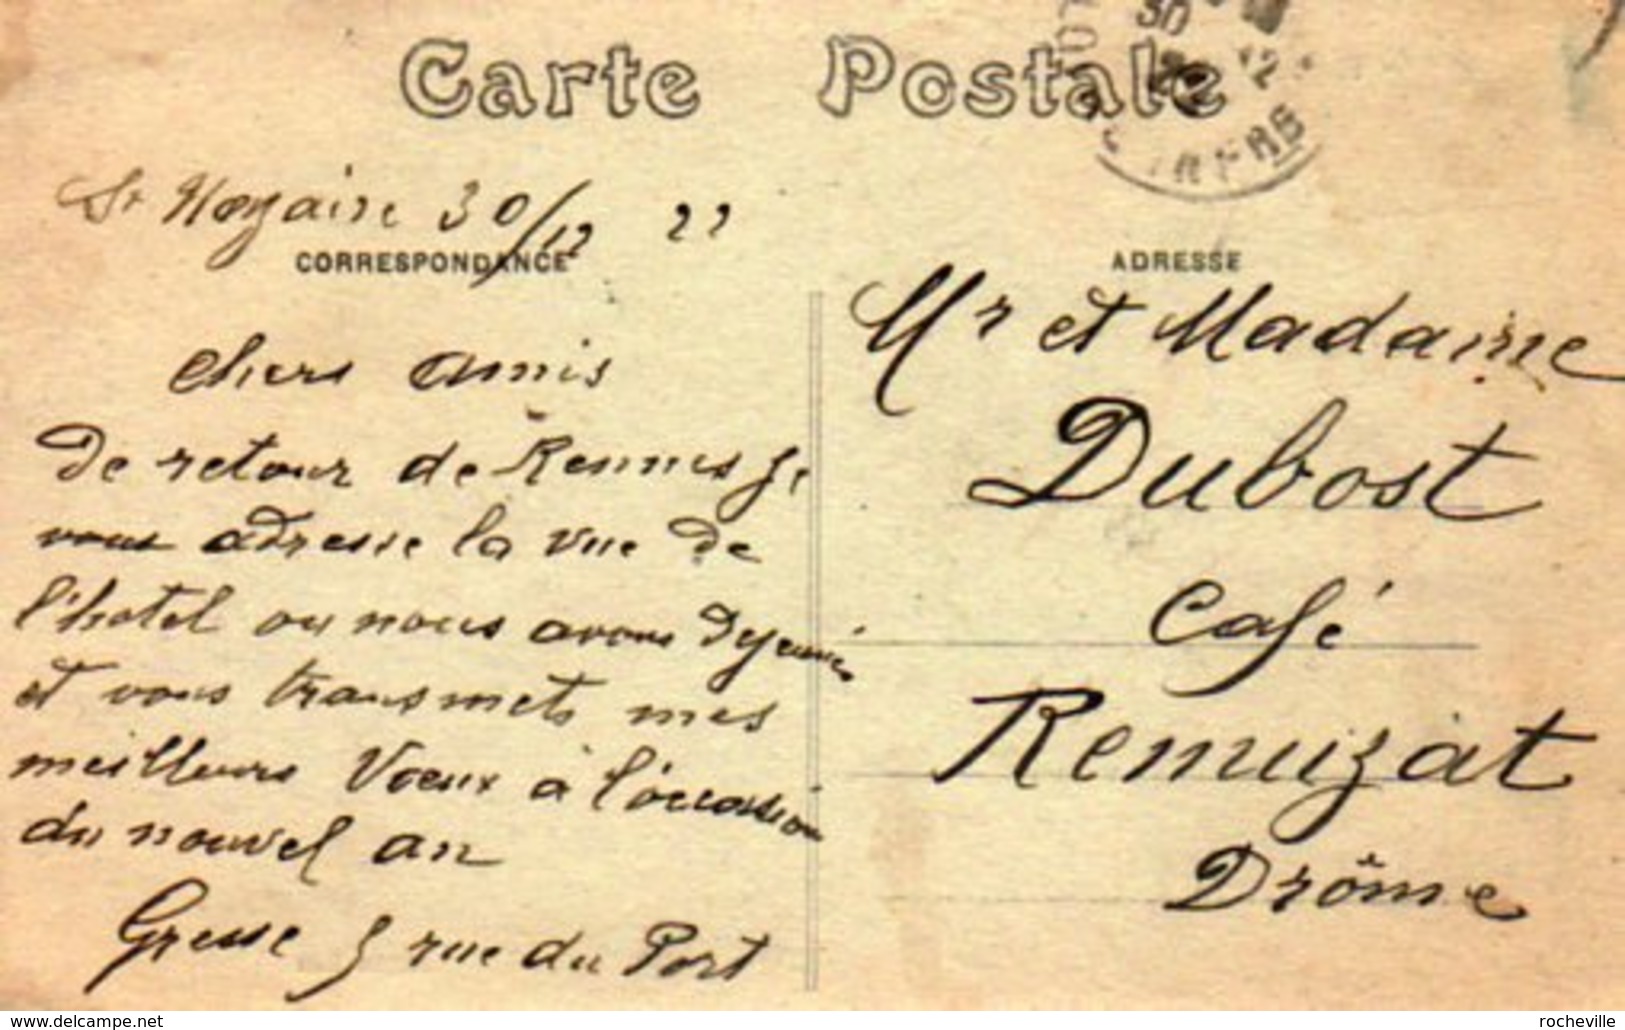 Carte Postale
30
12
St Nazaire 30/12 22
CORRESPONDANCE
Chers amis
De retour de Rennes je
vous adresse la vue de
l'hotel ou nous avons Dejeuner
et vous transmets mes
meilleurs Voeux à l'occassion
du nouvel an
rue du Port
ADRESSE
Mr et Madame
Dubost
Café
Remuzat
Drôme
www.delcampe.net
rocheville